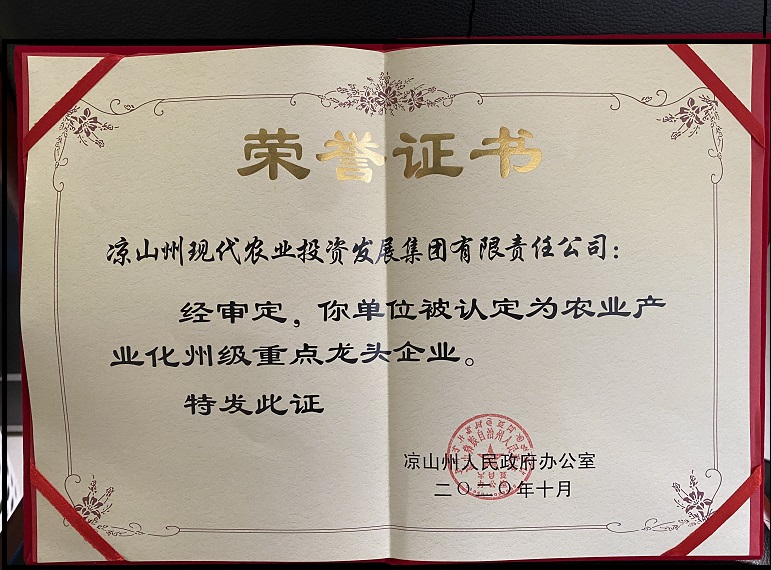 荣誉证书
凉山州现代农业投资发展集团有限责任公司：
经审定，你单位被认定为农业产
业化州级重点龙头企业。
特发此证
凉山州人民政府办公室
二〇二〇年十月